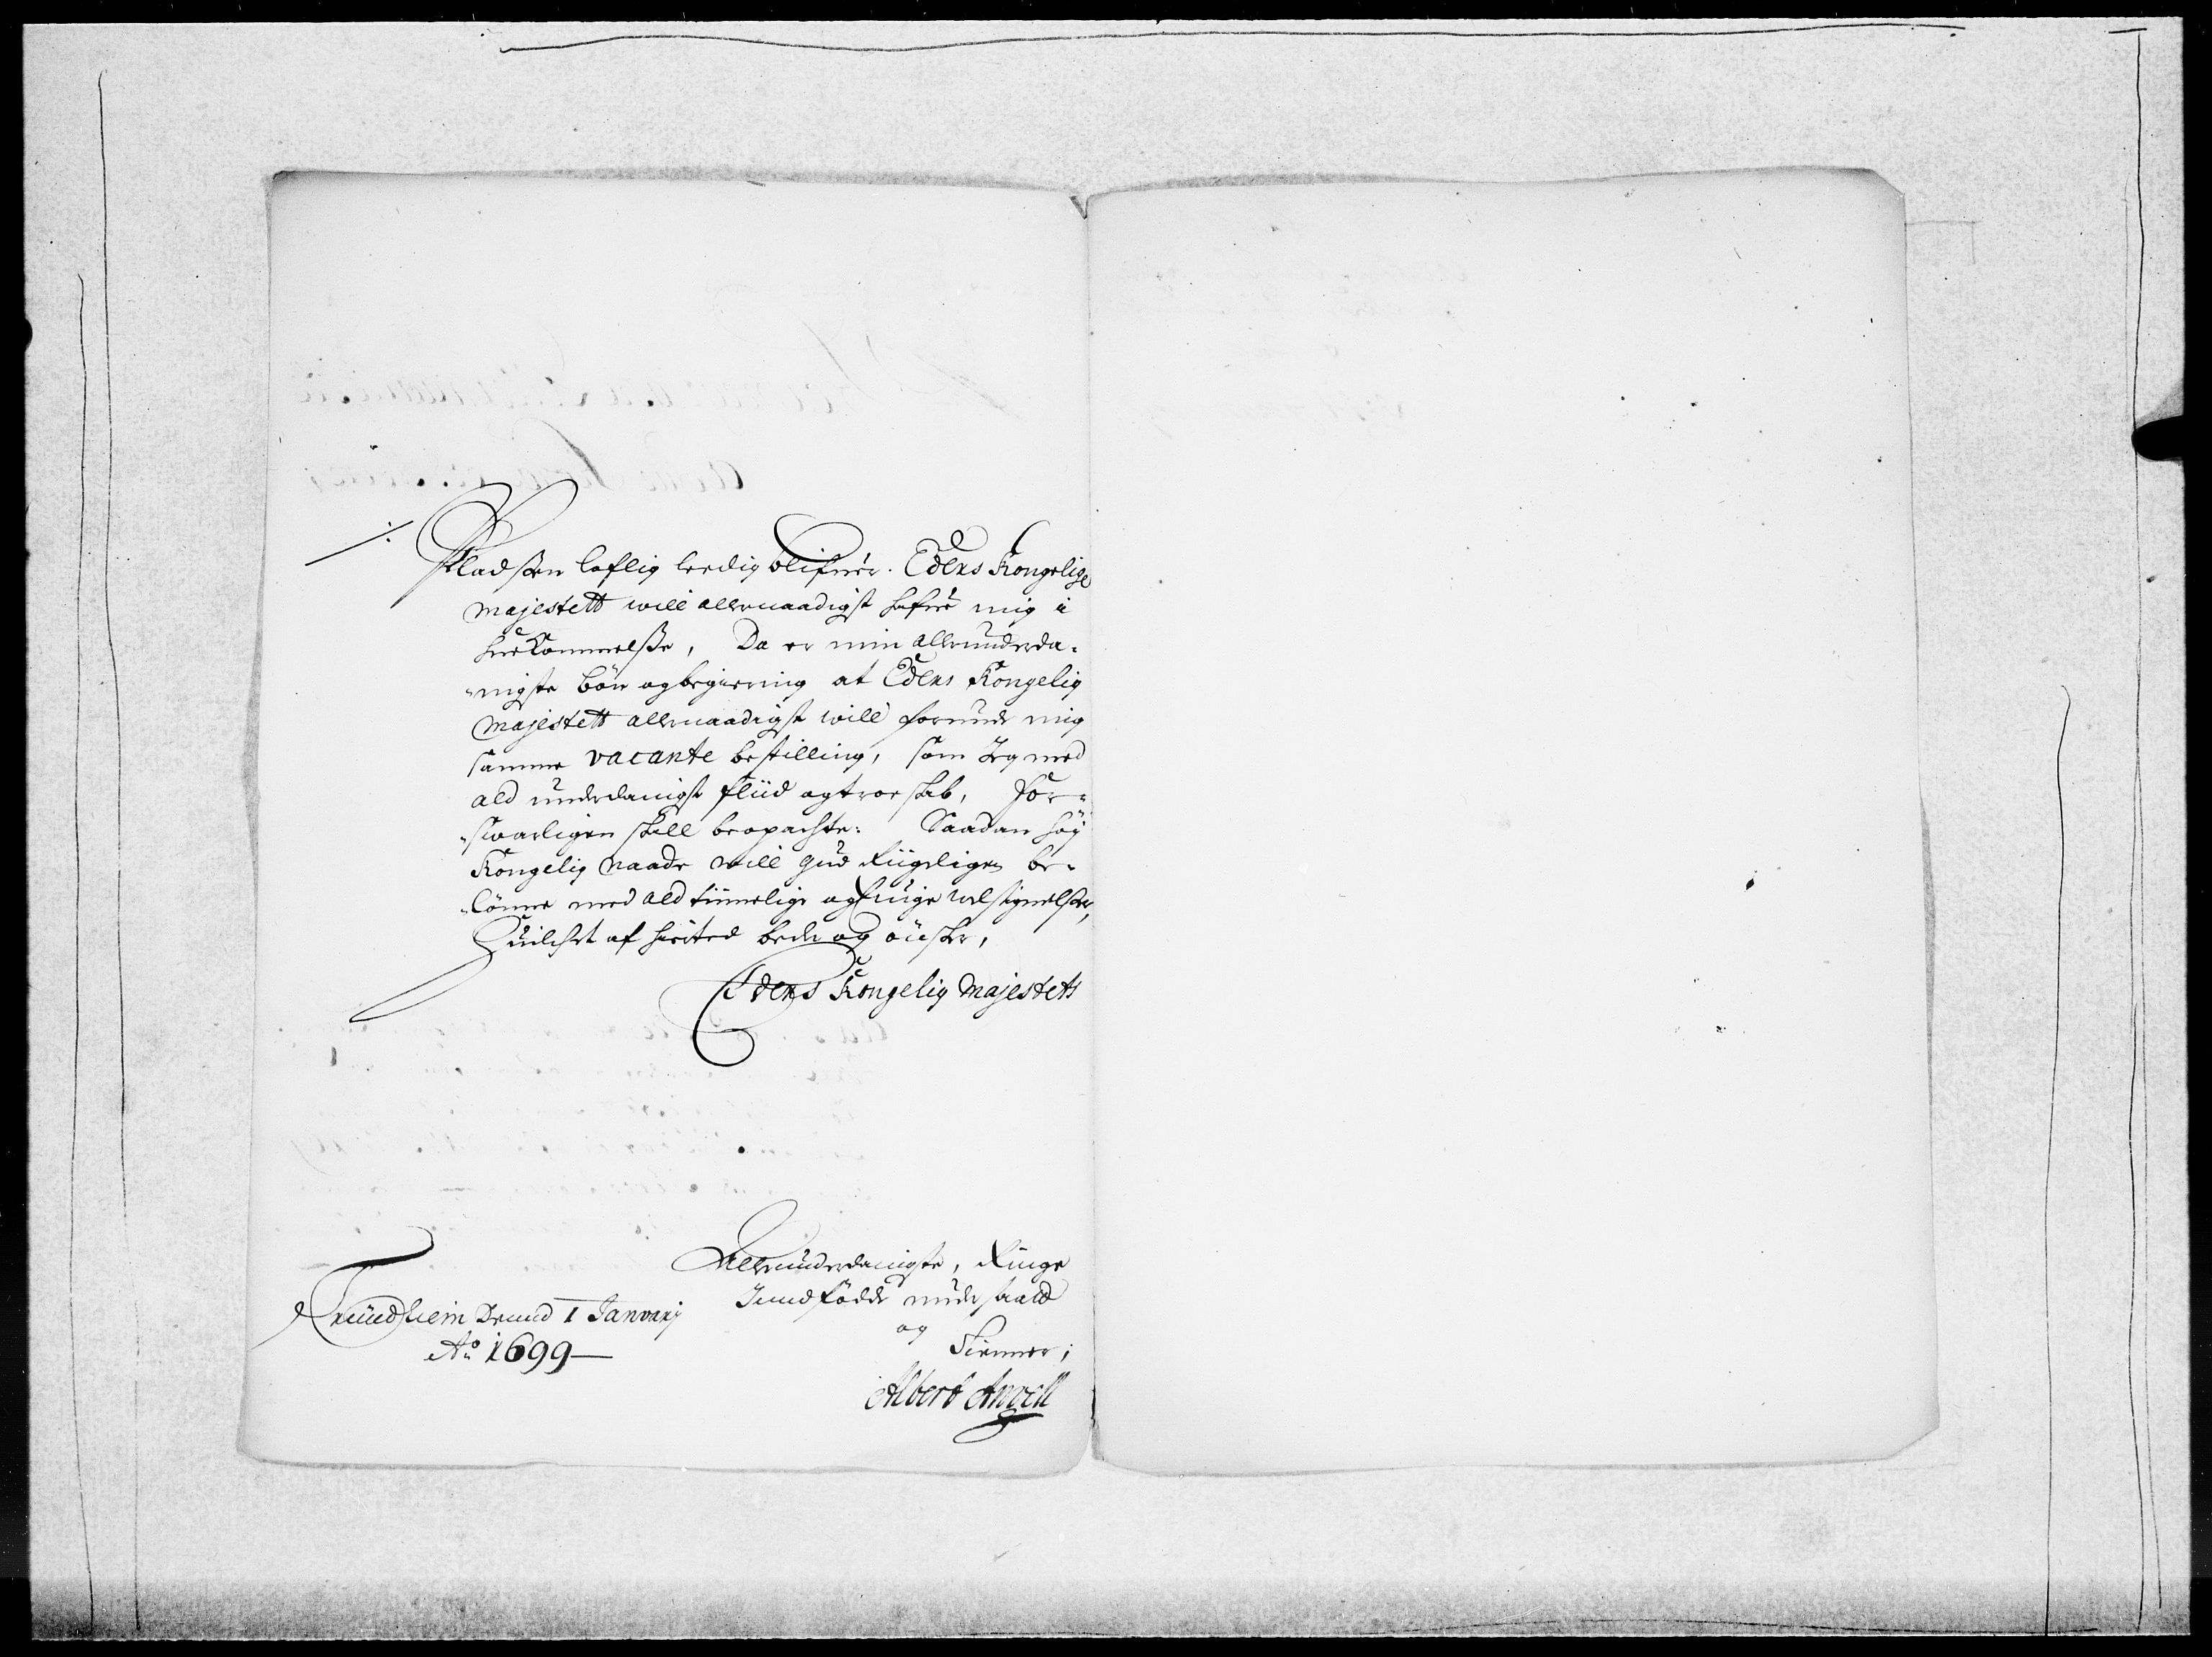 Pladsen loflig leedig blifuer. Eders Kongelige
Majestett will allernaadigst hafue mig i
hukommelsse, Da er min allerunderda-
-nigste bön og begiering at Eders Kongelig
Majestett allernaadigst will forunde mig
samme vacante bestilling, som Jeg med
ald underdanigst fliid og troeskab, for-
-suarligen skall beopachte. Saadan höy
Kongelig naade will Gud Riigeligen be-
-lönne med ald timmelige og Euige velsignelsser,
Huilchet af hiertet beder og önsker,
Eders Kongelig Majestets
Allerunderdanigste, Ringe
Inndfödde undersaatt
og
Tienner;
Albert Angell
Trundhiem Dend 1 Januarij
Ao 1699